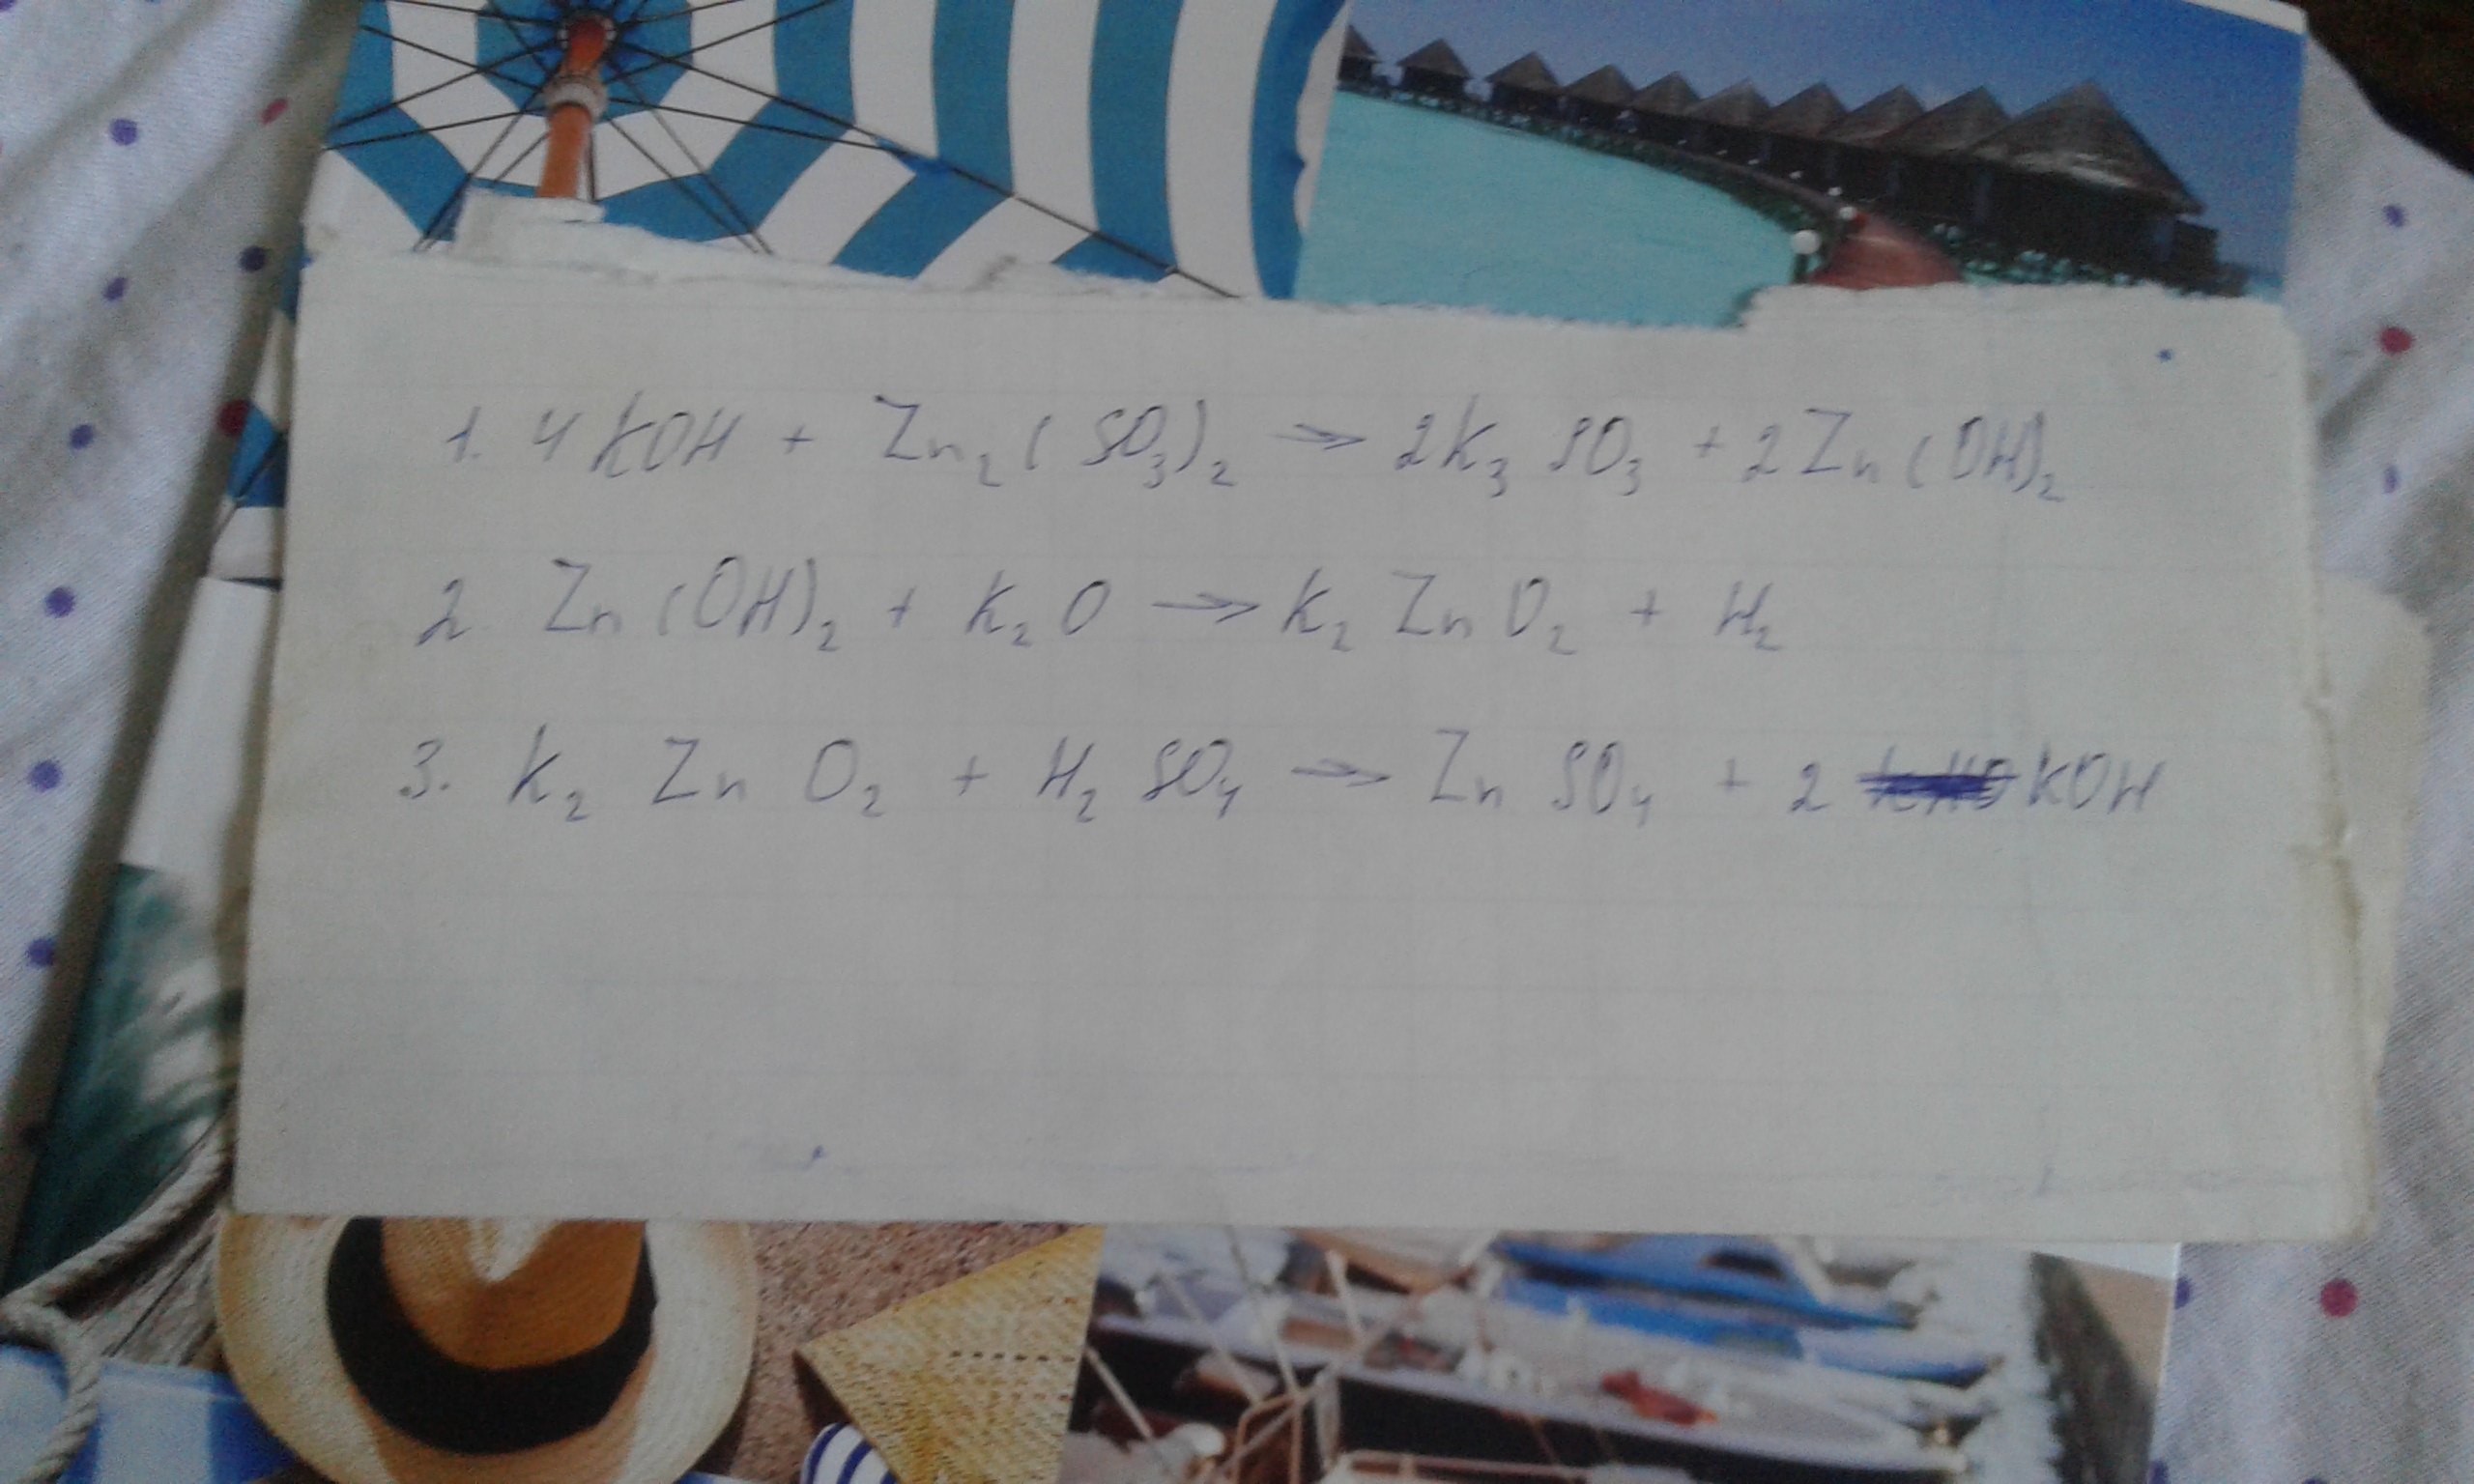 1. 4 KOH + Zn₂(SO₃)₂ → 2K₃SO₃ + 2Zn(OH)₂
2 Zn(OH)₂ + K₂O → K₂ZnO₂ + H₂
3. K₂ZnO₂ + H₂SO₄ → ZnSO₄ + 2 KOH